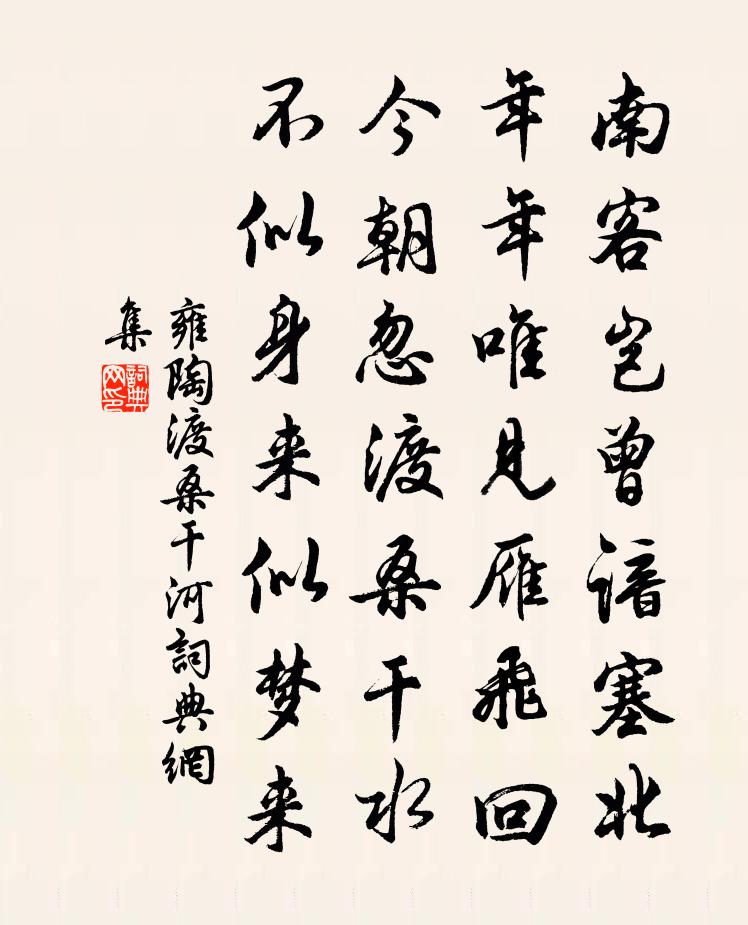 南客岂曾谙塞北
年年唯见雁飞回
今朝忽渡桑干水
不似身来似梦来
雍陶渡桑干河詞典網
集
詞典網印